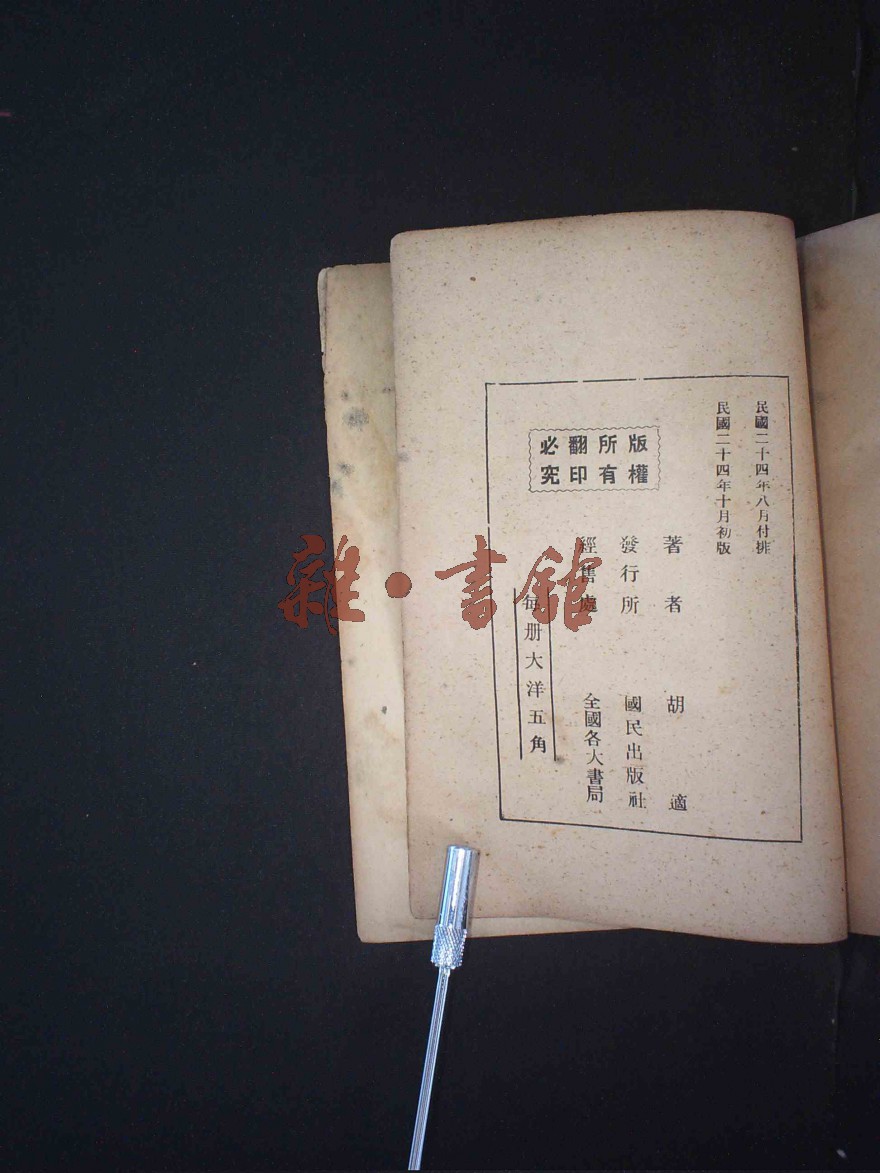 民國二十四年八月付排
民國二十四年十月初版
版權
所有
翻印
必究
著者 胡適
發行所 國民出版社
經售處 全國各大書局
每册大洋五角
雜·書館